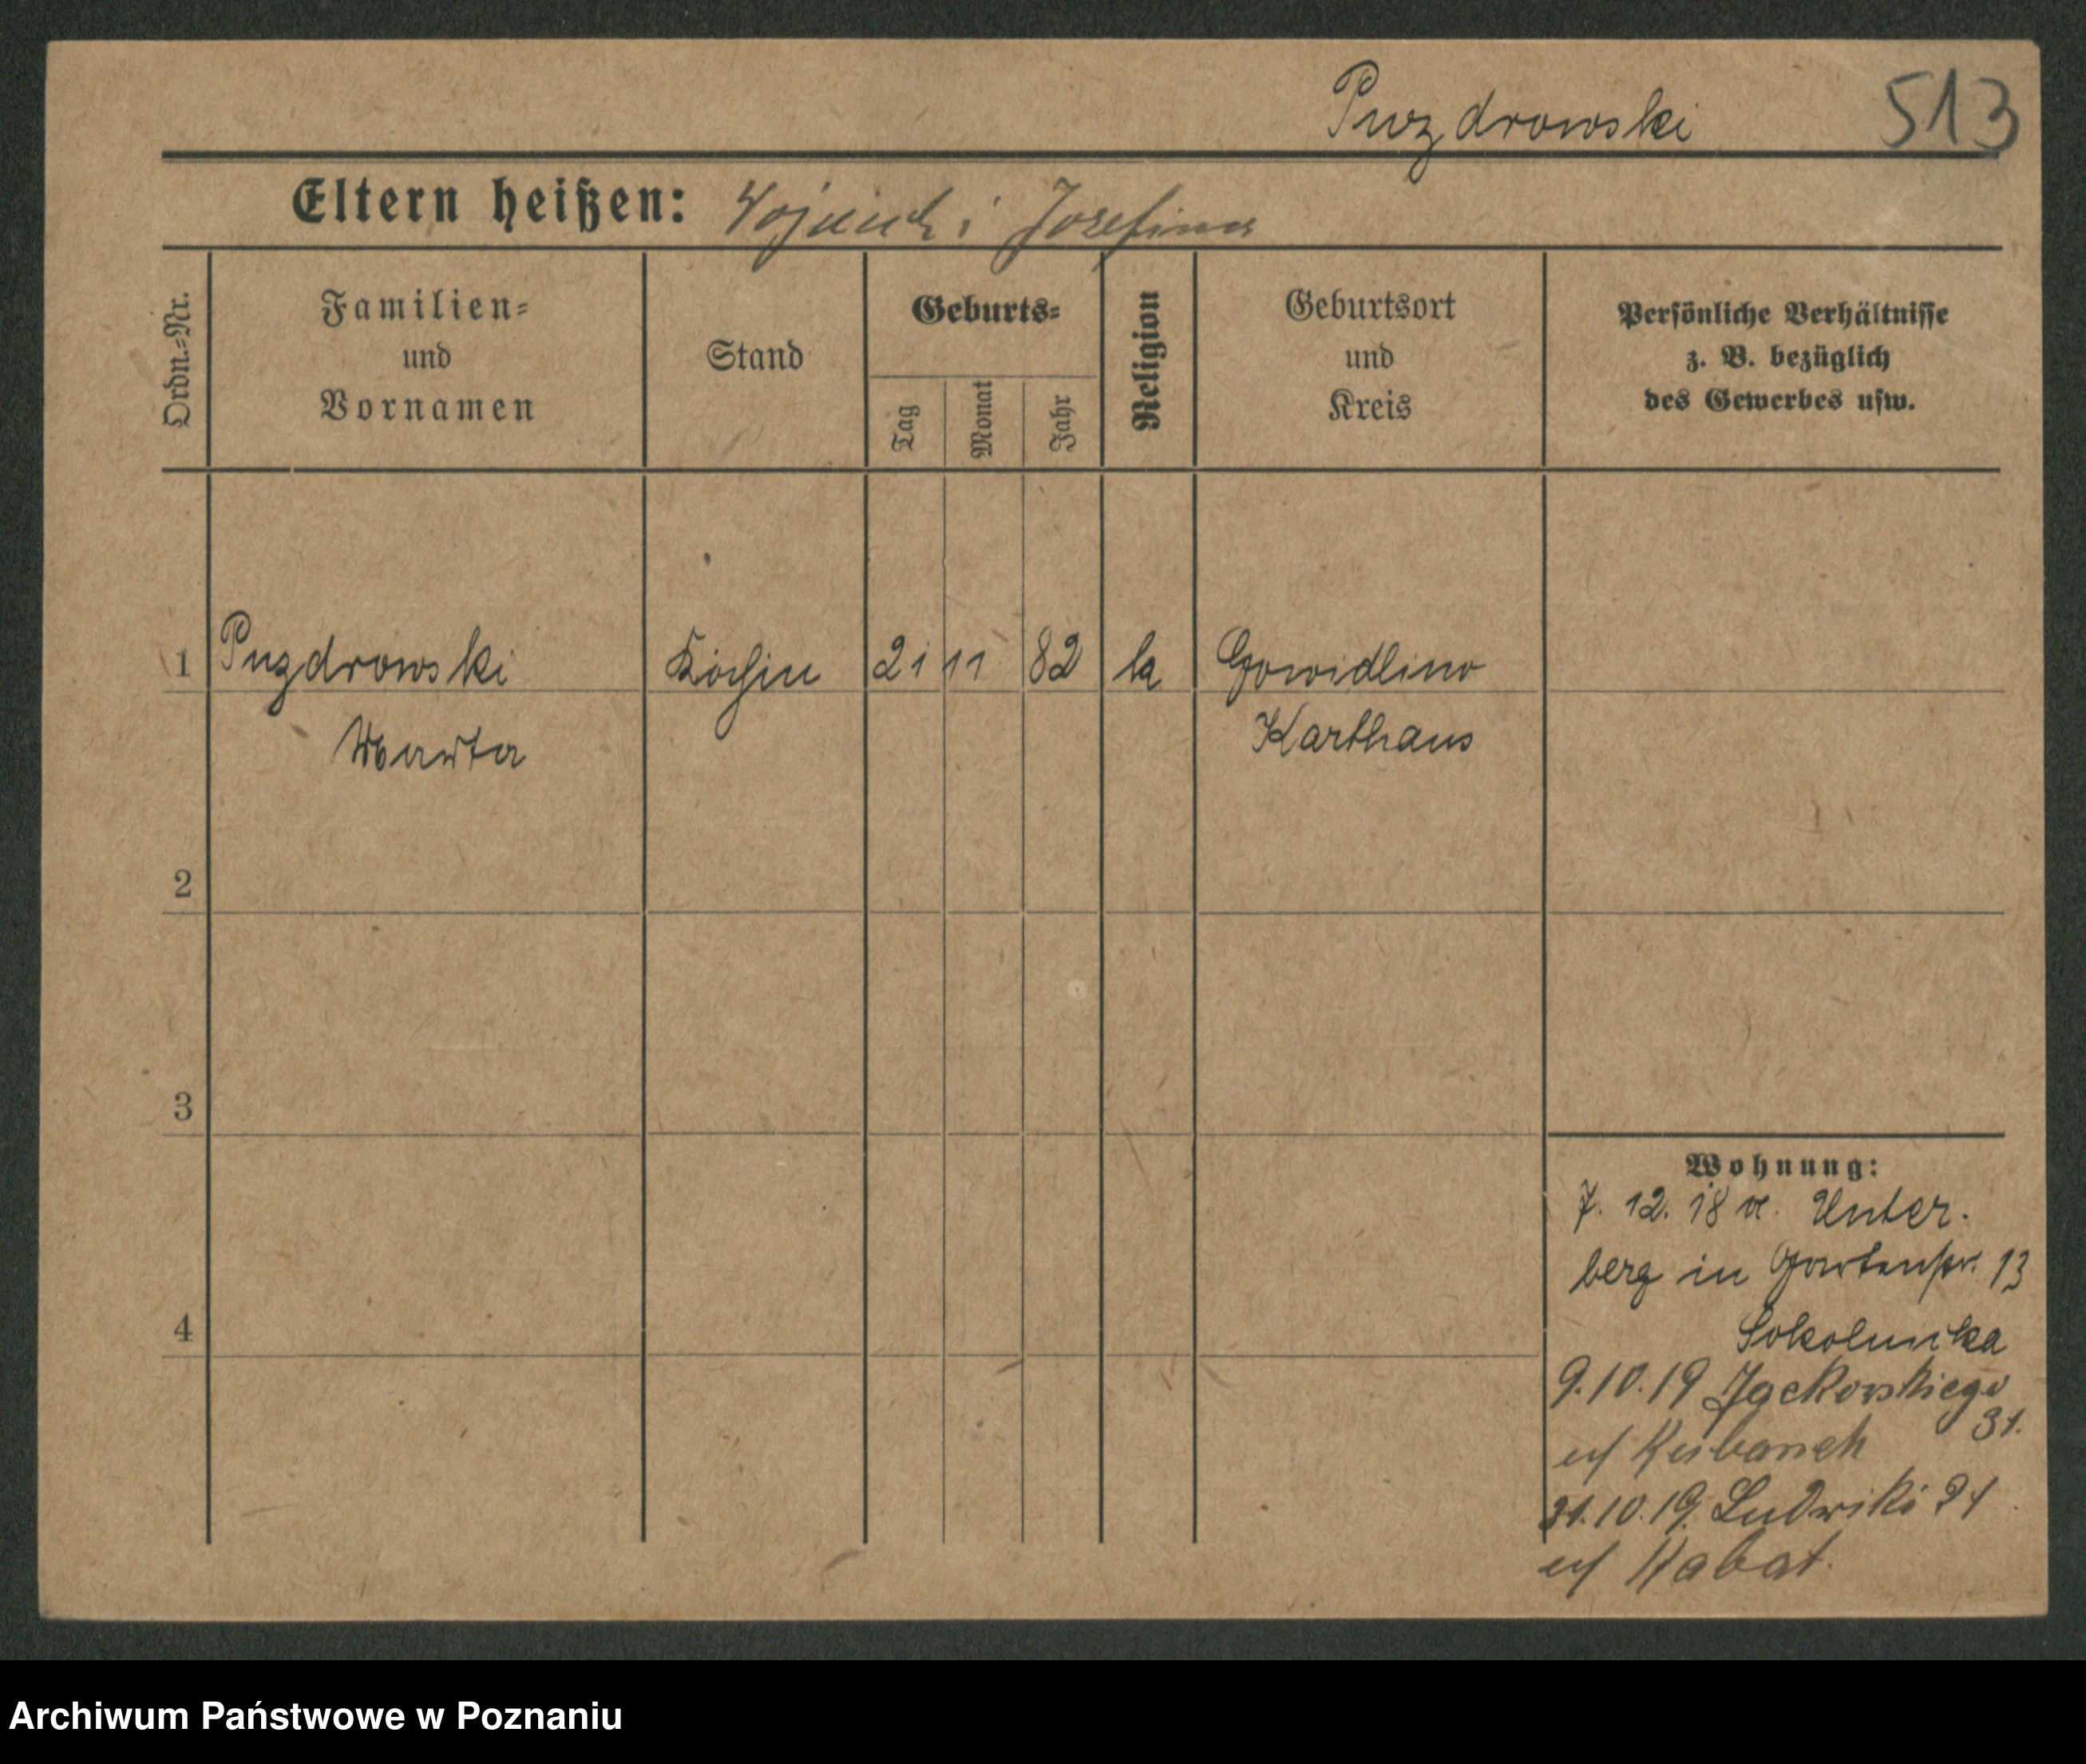 Puzdrowski 513
Eltern heißen: Wojciech i Josefina
Ordn.-Nr.
Familien-
und
Vornamen
Stand
Geburts-
Tag
Monat
Jahr
Religion
Geburtsort
und
Kreis
Persönliche Verhältnisse
z. B. bezüglich
des Gewerbes usw.
1 Puzdrowski Köchin 21 11 82 ka Gowidlino
Marta Karthaus
2
3
4
Wohnung:
7. 12. 18 v. Unter-
berg in Gartenstr. 13
Sokolnicka
9.10.19 Jackowskiego
31.
Kubanek
31.10.19. Ludwiki
Kabat.
Archiwum Państwowe w Poznaniu